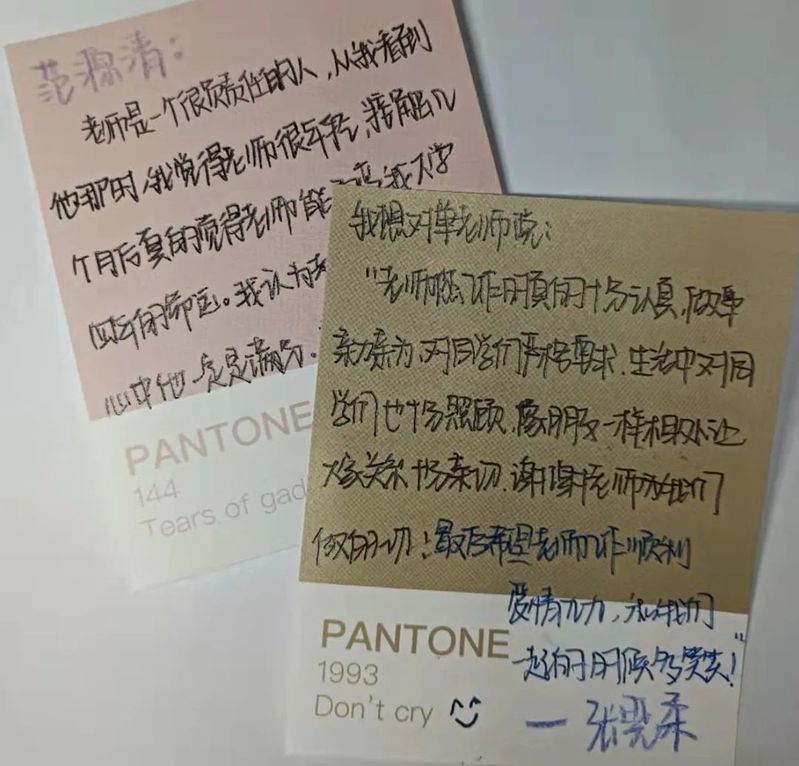 范源清：
老师是一个很负责任的人，从我看到
他那时我觉得老师很年轻，接触几
个月后真的觉得老师能 我入学
的命运。我认为
心中他一定是满分.
PANTONE
144
Tears of gad
我想对单老师说：
“老师您工作时真的十分认真，做事
亲力亲为，对同学们严格要求.生活中对同
学们也十分照顾，像朋友一样相处让
大家关系十分亲切.谢谢老师为我们
做的一切！最后希望老师工作顺利
爱情 ，和我们
一起的时候多笑笑！”
PANTONE
1993
Don't cry
— 张 柔